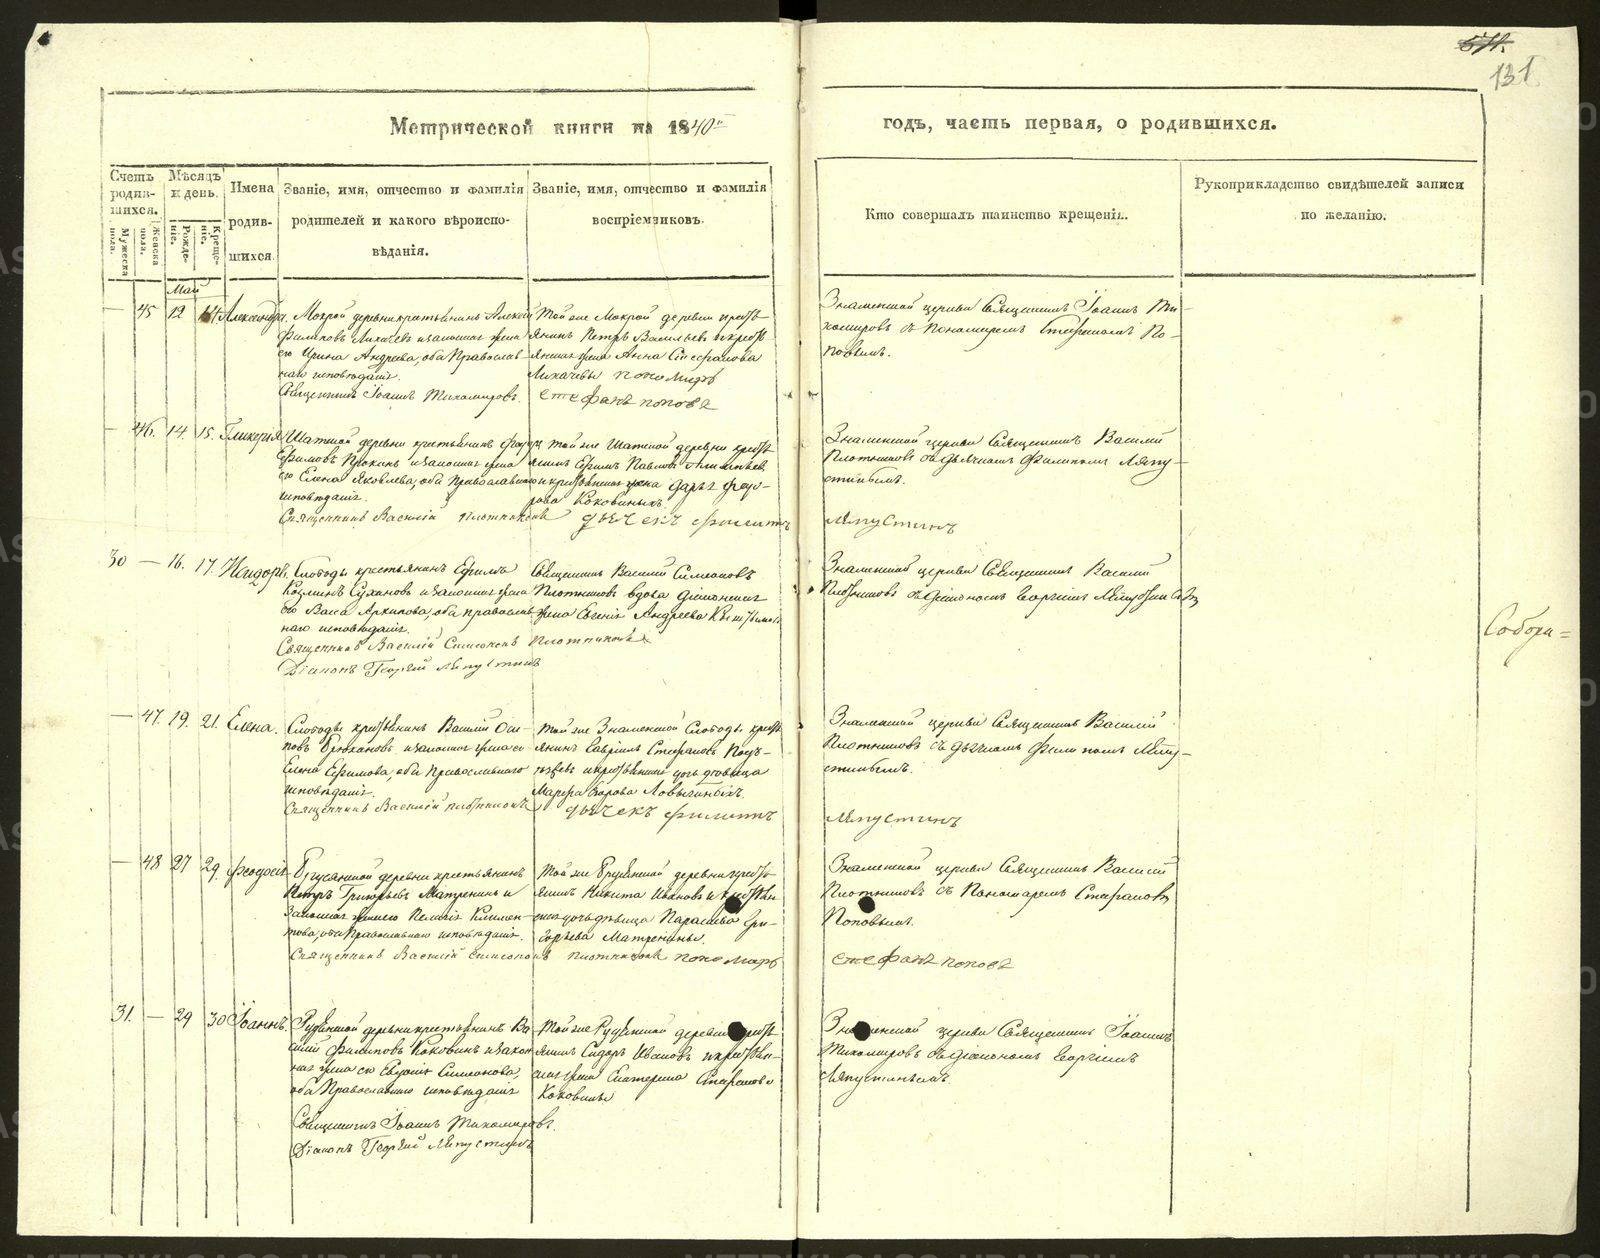 571.
131
Метрической книги на 1840й
годъ, часть первая, о родившихся.
Счетъ родившихся.
Мужеска пола.
Женска пола.
Мѣсяцъ и день.
Рожденіе.
Крещеніе.
Имена родившихся
Званіе, имя, отчество и фамилія родителей и какого вѣроисповѣданія.
Званіе, имя, отчество и фамилія воспріемниковъ.
Кто совершалъ таинство крещенія.
Рукоприкладство свидѣтелей записи по желанію.
Май
— 45 12 14 Александра.
Мокрой деревни крестьянинъ Алексей
Филиповъ Лихачевъ и законная жена
его Ирина Андреева, оба Православ-
наго исповѣданія.
Священникъ Іоаннъ Тихомировъ.
Той же Мокрой деревни крестъ
янинъ Петръ Васильевъ и крест
янская жена Анна Стефанова
Лихачевы пономарь
стефанъ поповъ
Знаменской церкви Священникъ Іоаннъ Ти-
хомировъ съ Пономаремъ Стефаномъ По-
повымъ.
— 46. 14. 15. Гликерія
Шатской деревни крестьянинъ Федоръ
Ефимовъ и законная жена
его Елена Яковлева, оба Православнаго
исповѣданія.
Священникъ Василій Плотниковъ
Той же Шатской деревни крест
янинъ Ефимъ Павловъ
и крестьянская жена Дарья Федо-
рова Коковиныхъ.
дьячекъ филиппъ
Знаменской церкви Священникъ Василій
Плотниковъ съ дьячкомъ Филипомъ Ляпу-
стинымъ.
Ляпустинъ
30 — 16. 17. Исидоръ.
Слободы крестьянинъ Ефимъ
Козминъ Сухановъ и законная жена
его Васа Архипова, оба православ-
наго исповѣданія.
Священникъ Василій Симеоновъ Плотниковъ
Діаконъ Георгій Ляпустинъ
Священникъ Василій Симеоновъ
Плотниковъ вдова діаконская
жена Евгенія Андреева
Знаменской церкви Священникъ Василій
Плотниковъ съ Діакономъ Георгіемъ Ляпустинымъ
Собори=
— 47. 19. 21. Елена.
Слободы крестьянинъ Василій Оси-
повъ Брюхановъ и законная жена его
Елена Ефимова, оба Православнаго
исповѣданія.
Священникъ Василій плотниковъ
Той же Знаменской Слободы крест
янинъ Гавріилъ Стефановъ
и крестьянская дочь дѣвица
Марфа
дьячекъ филиппъ
Знаменской церкви Священникъ Василій
Плотниковъ съ дьячкомъ Филипомъ Ляпу-
стинымъ.
Ляпустинъ
— 48 27 29. Феодосія
деревни крестьянинъ
Петръ Григорьевъ Матренинъ и
Законная жена его Пелагія Климен-
това, оба Православнаго исповѣданія.
Священникъ Василій Симеоновъ плотниковъ пономарь
Той же деревни крестъ
янинъ Никита Ивановъ и крестьян
ская дочь дѣвица Параскева Гри-
горьева Матренины.
Знаменской церкви Священникъ Василій
Плотниковъ съ Пономаремъ Стефаномъ
Поповымъ.
стефанъ поповъ
31. — 29 30 Іоаннъ.
деревни крестьянинъ Ва
силій Филиповъ Коковинъ и закон
ная жена его Евдокія Симеонова,
оба Православнаго исповѣданія
Священникъ Іоаннъ Тихомировъ.
Діаконъ Георгій Ляпустинъ
Той же деревни крест
янинъ Сидоръ Ивановъ и крестьян-
ская жена Екатерина Стефанова
Коковины
Знаменской церкви Священникъ Іоаннъ
Тихомировъ съ Діакономъ Георгіемъ
Ляпустинымъ.